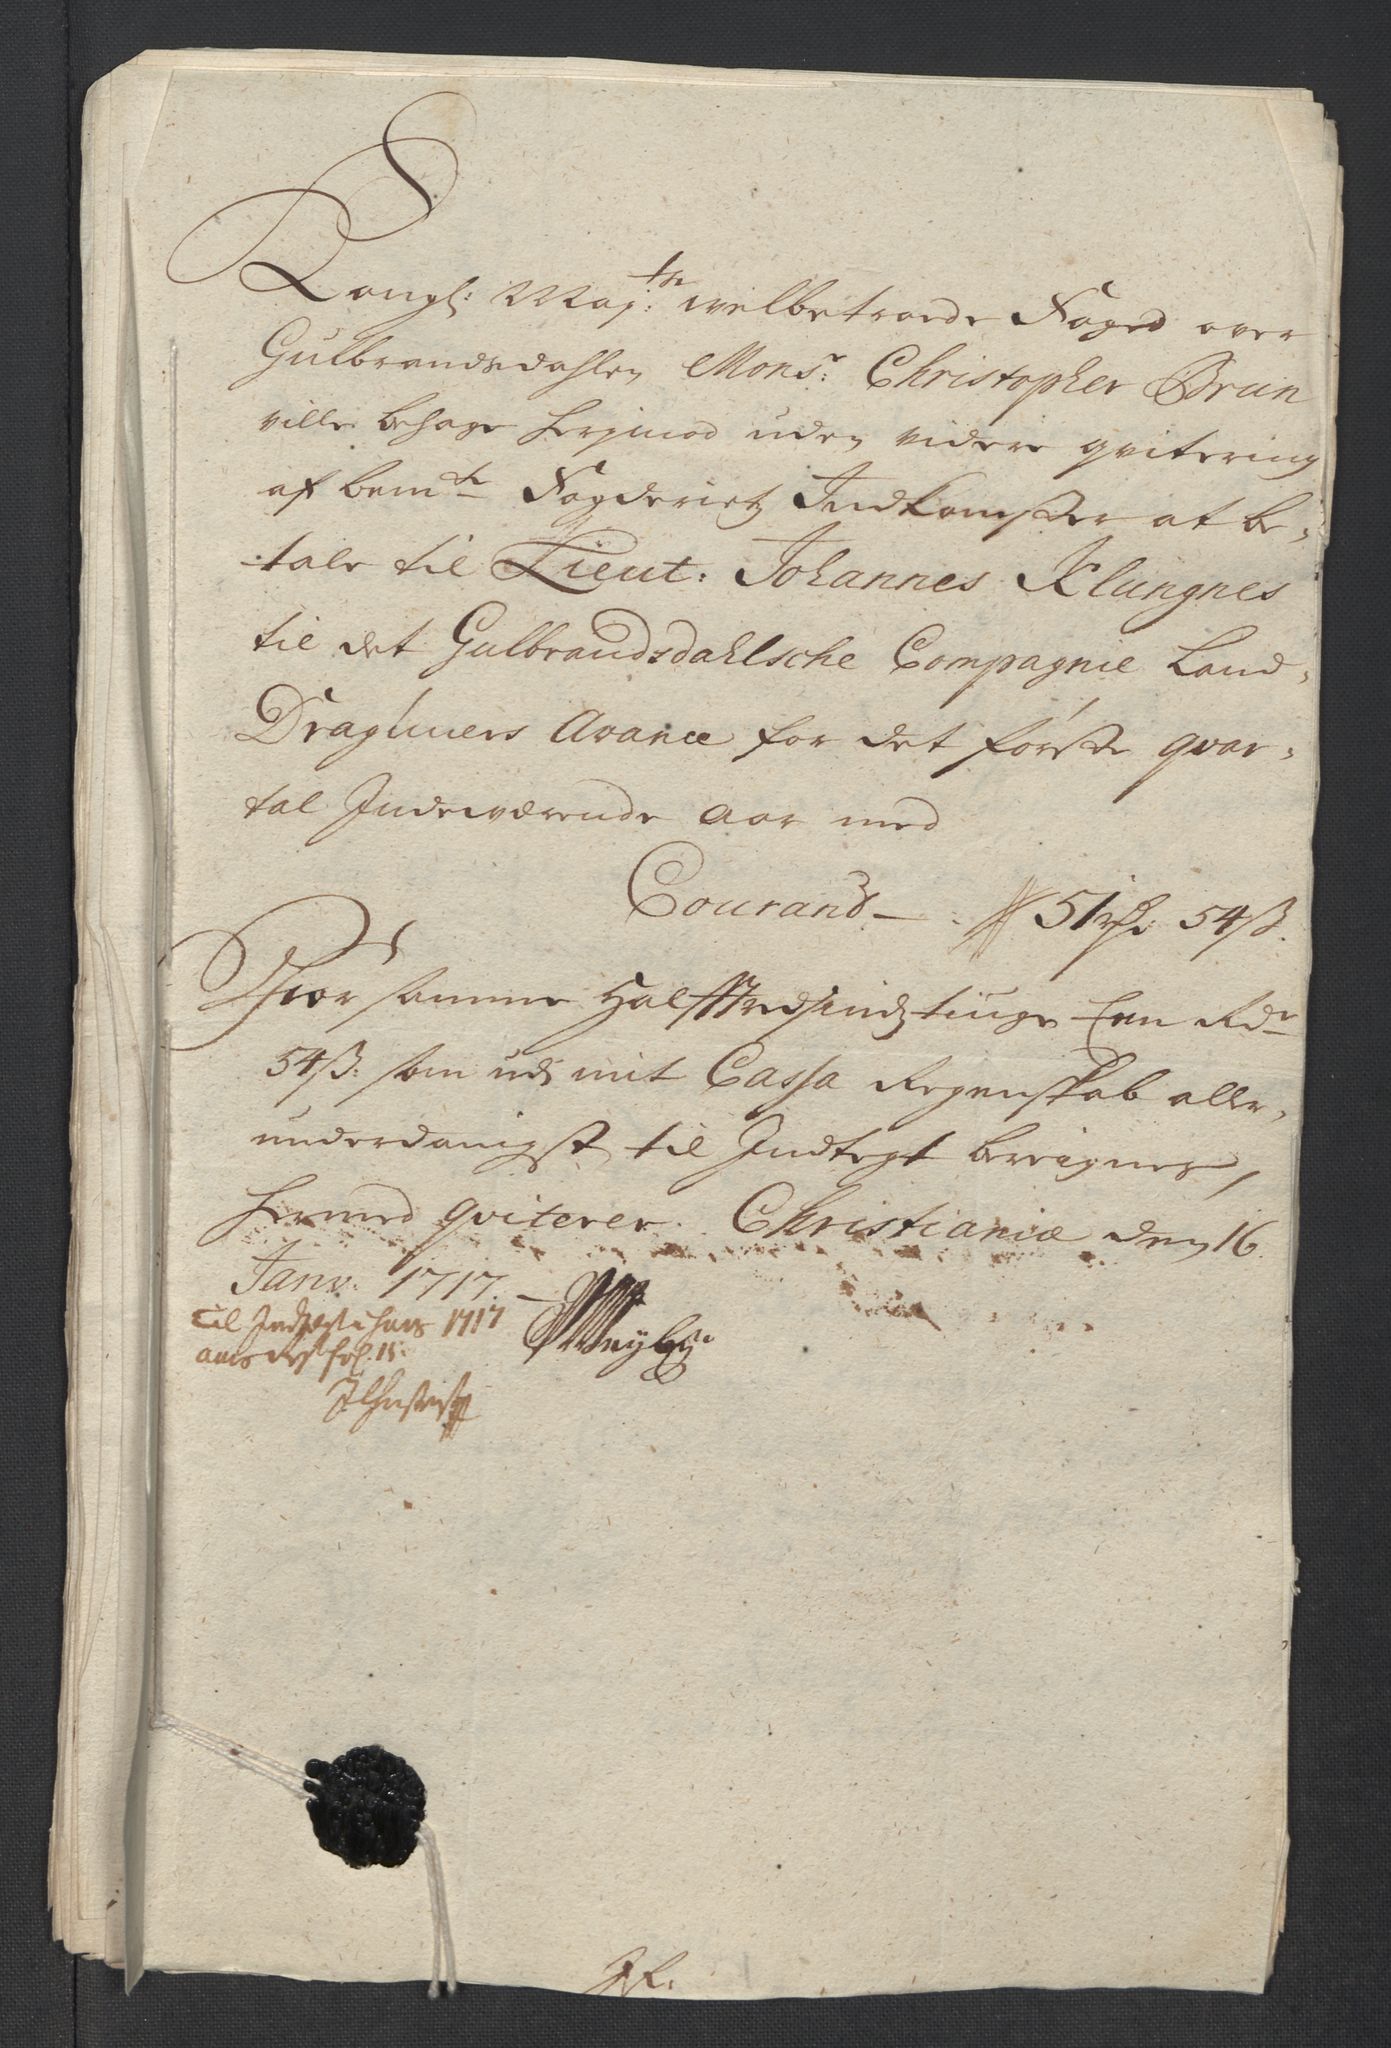 Kongl: Maj:ts velbetroede Foged over
Gulbrandsdahlen Mons:r Christopher Brun
ville behage herimod uden videre qvitering
af bem:te Fogderietz Indkomster at be-
tale til Lieut: Johannes Klungnes
til det Gulbrandsdahlsche Compagnie Land-
Draghuners Avance for det förste qvar-
tal Indeværende Aar med
Courand – 51 rd: 54 ß.
Hvor samme Halfftredsindstiuge Een Rdr
54 ß: som udj mit Cassa Regenskab aller-
underdanigst til Indtegt bereigner,
hermed qviterer. Christianiæ den 16
Janv: 1717.
Til Indtægt i hans 1717
aars fol. 15.